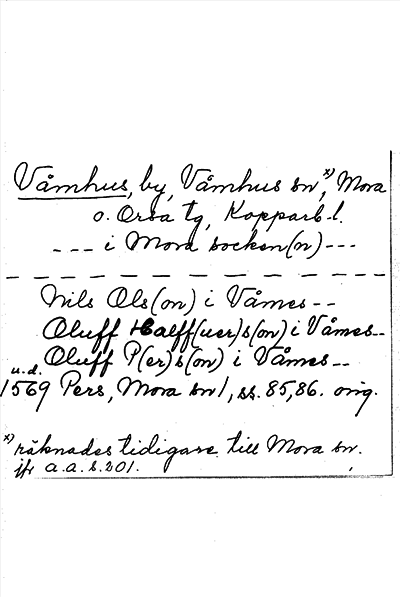 Våmhus, by, Våmhus sn,x) Mora
o. Orsa tg, Kopparb. l.
--- i Mora socken(n) ---
Nils Ols(on) i Våmes --
Oluff Halff(uer)s(on) i Våmes --
Oluff P(er)s(on) i Våmes --
u.d.
1569 Pers, Mora sn 1, ss. 85, 86. orig.
x) räknades tidigare till Mora sn.
jfr a.a. s. 201.